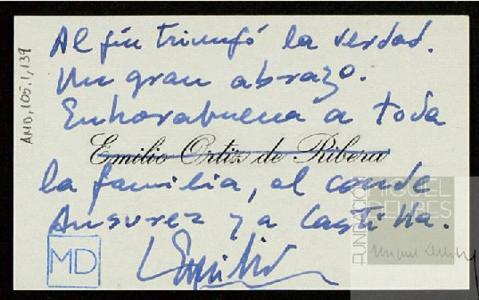 Al fin triunfó la verdad.
Un gran abrazo.
Enhorabuena a toda
Emilio Ortiz de Ribera
la familia, al conde
Ansurez y a Castilla.
Emilio
MD
AMD,105.1,139
FUNDACIÓN
MIGUEL
DELIBES